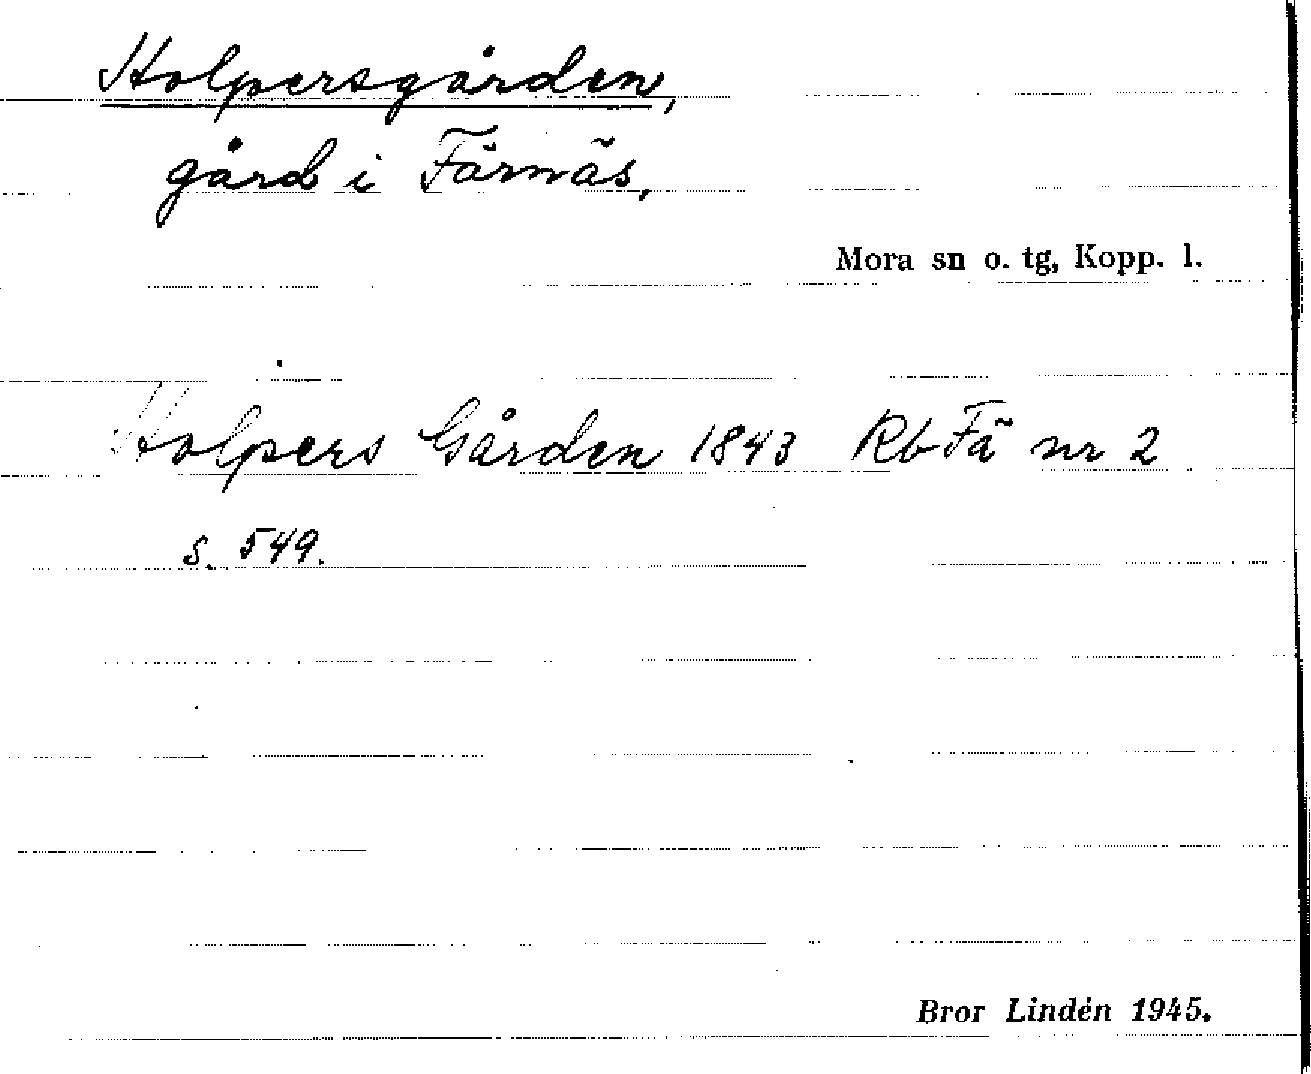 Holpersgården,
gård i Färnäs,
Mora sn o. tg, Kopp. l.
Holpers Gården 1843 Rb Fä nr 2
s. 549.
Bror Lindén 1945.